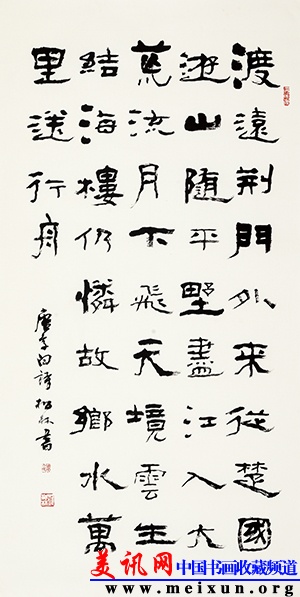 渡遠荊門外来從楚國
遊山隨平野盡江入大
荒流月下飛天境雲生
結海樓仍憐故鄉水萬
里送行舟
唐李白詩 松林書
美讯网 中国书画收藏频道
www.meixun.org